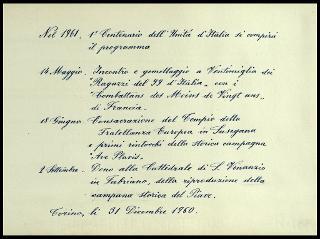 Nel 1961, 1° Centenario dell'Unità d'Italia si compirà
il programma
14 Maggio. Incontro e gemellaggio a Ventimiglia dei
"Ragazzi del 99 d'Italia" con i
"Combattans des Moins de Vingt ans"
di Francia.
18 Giugno. Consacrazione del Tempio della
Fratellanza Europea in Susegana
e primi rintocchi della storica campagna
"Ave Plavis".
2 Settembre. Dono alla Cattedrale di S. Venanzio
in Fabriano, della riproduzione della
campana storica del Piave.
Torino, lì 31 Dicembre 1960.